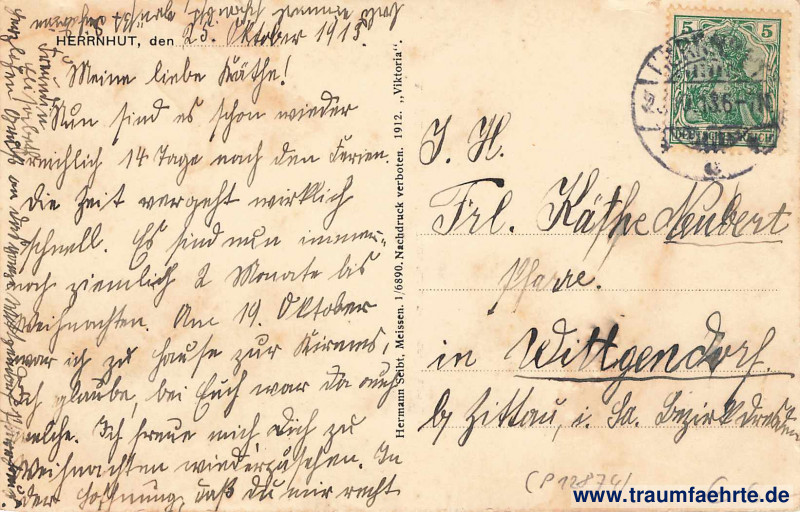 HERRNHUT, den 23. Oktober 1913.
Meine liebe Käthe!
Nun sind es schon wieder
reichlich 14 Tage nach den Ferien.
Die Zeit vergeht wirklich
schnell. Es sind nun immer-
noch ziemlich 2 Monate bis
Weihnachten. Am 19. Oktober
war ich zu Hause zur Kirmes,
ich glaube, bei Euch war da auch
welche. Ich freue mich Dich zu
Weihnachten wiederzusehen. In
der Hoffnung, daß du mir recht
Hermann Seibt, Meissen. 1/6890. Nachdruck verboten. 1912. „Viktoria".
5 5
DEUTSCHES REICH
I. H.
Frl. Käthe Neubert
Pfarre.
in Wittgendorf
b/ Zittau, i. Sa. Bezirk Dresden
(P 12874)
www.traumfaehrte.de